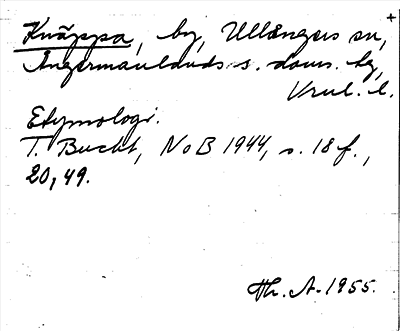 +
Knäppa, by, Ullångers sn,
Ångermanlands s. doms. bg,
Vnrl. l.
Etymologi.
T. Bucht, NoB 1944, s. 18 f.,
20, 49.
Hh. A. 1955.